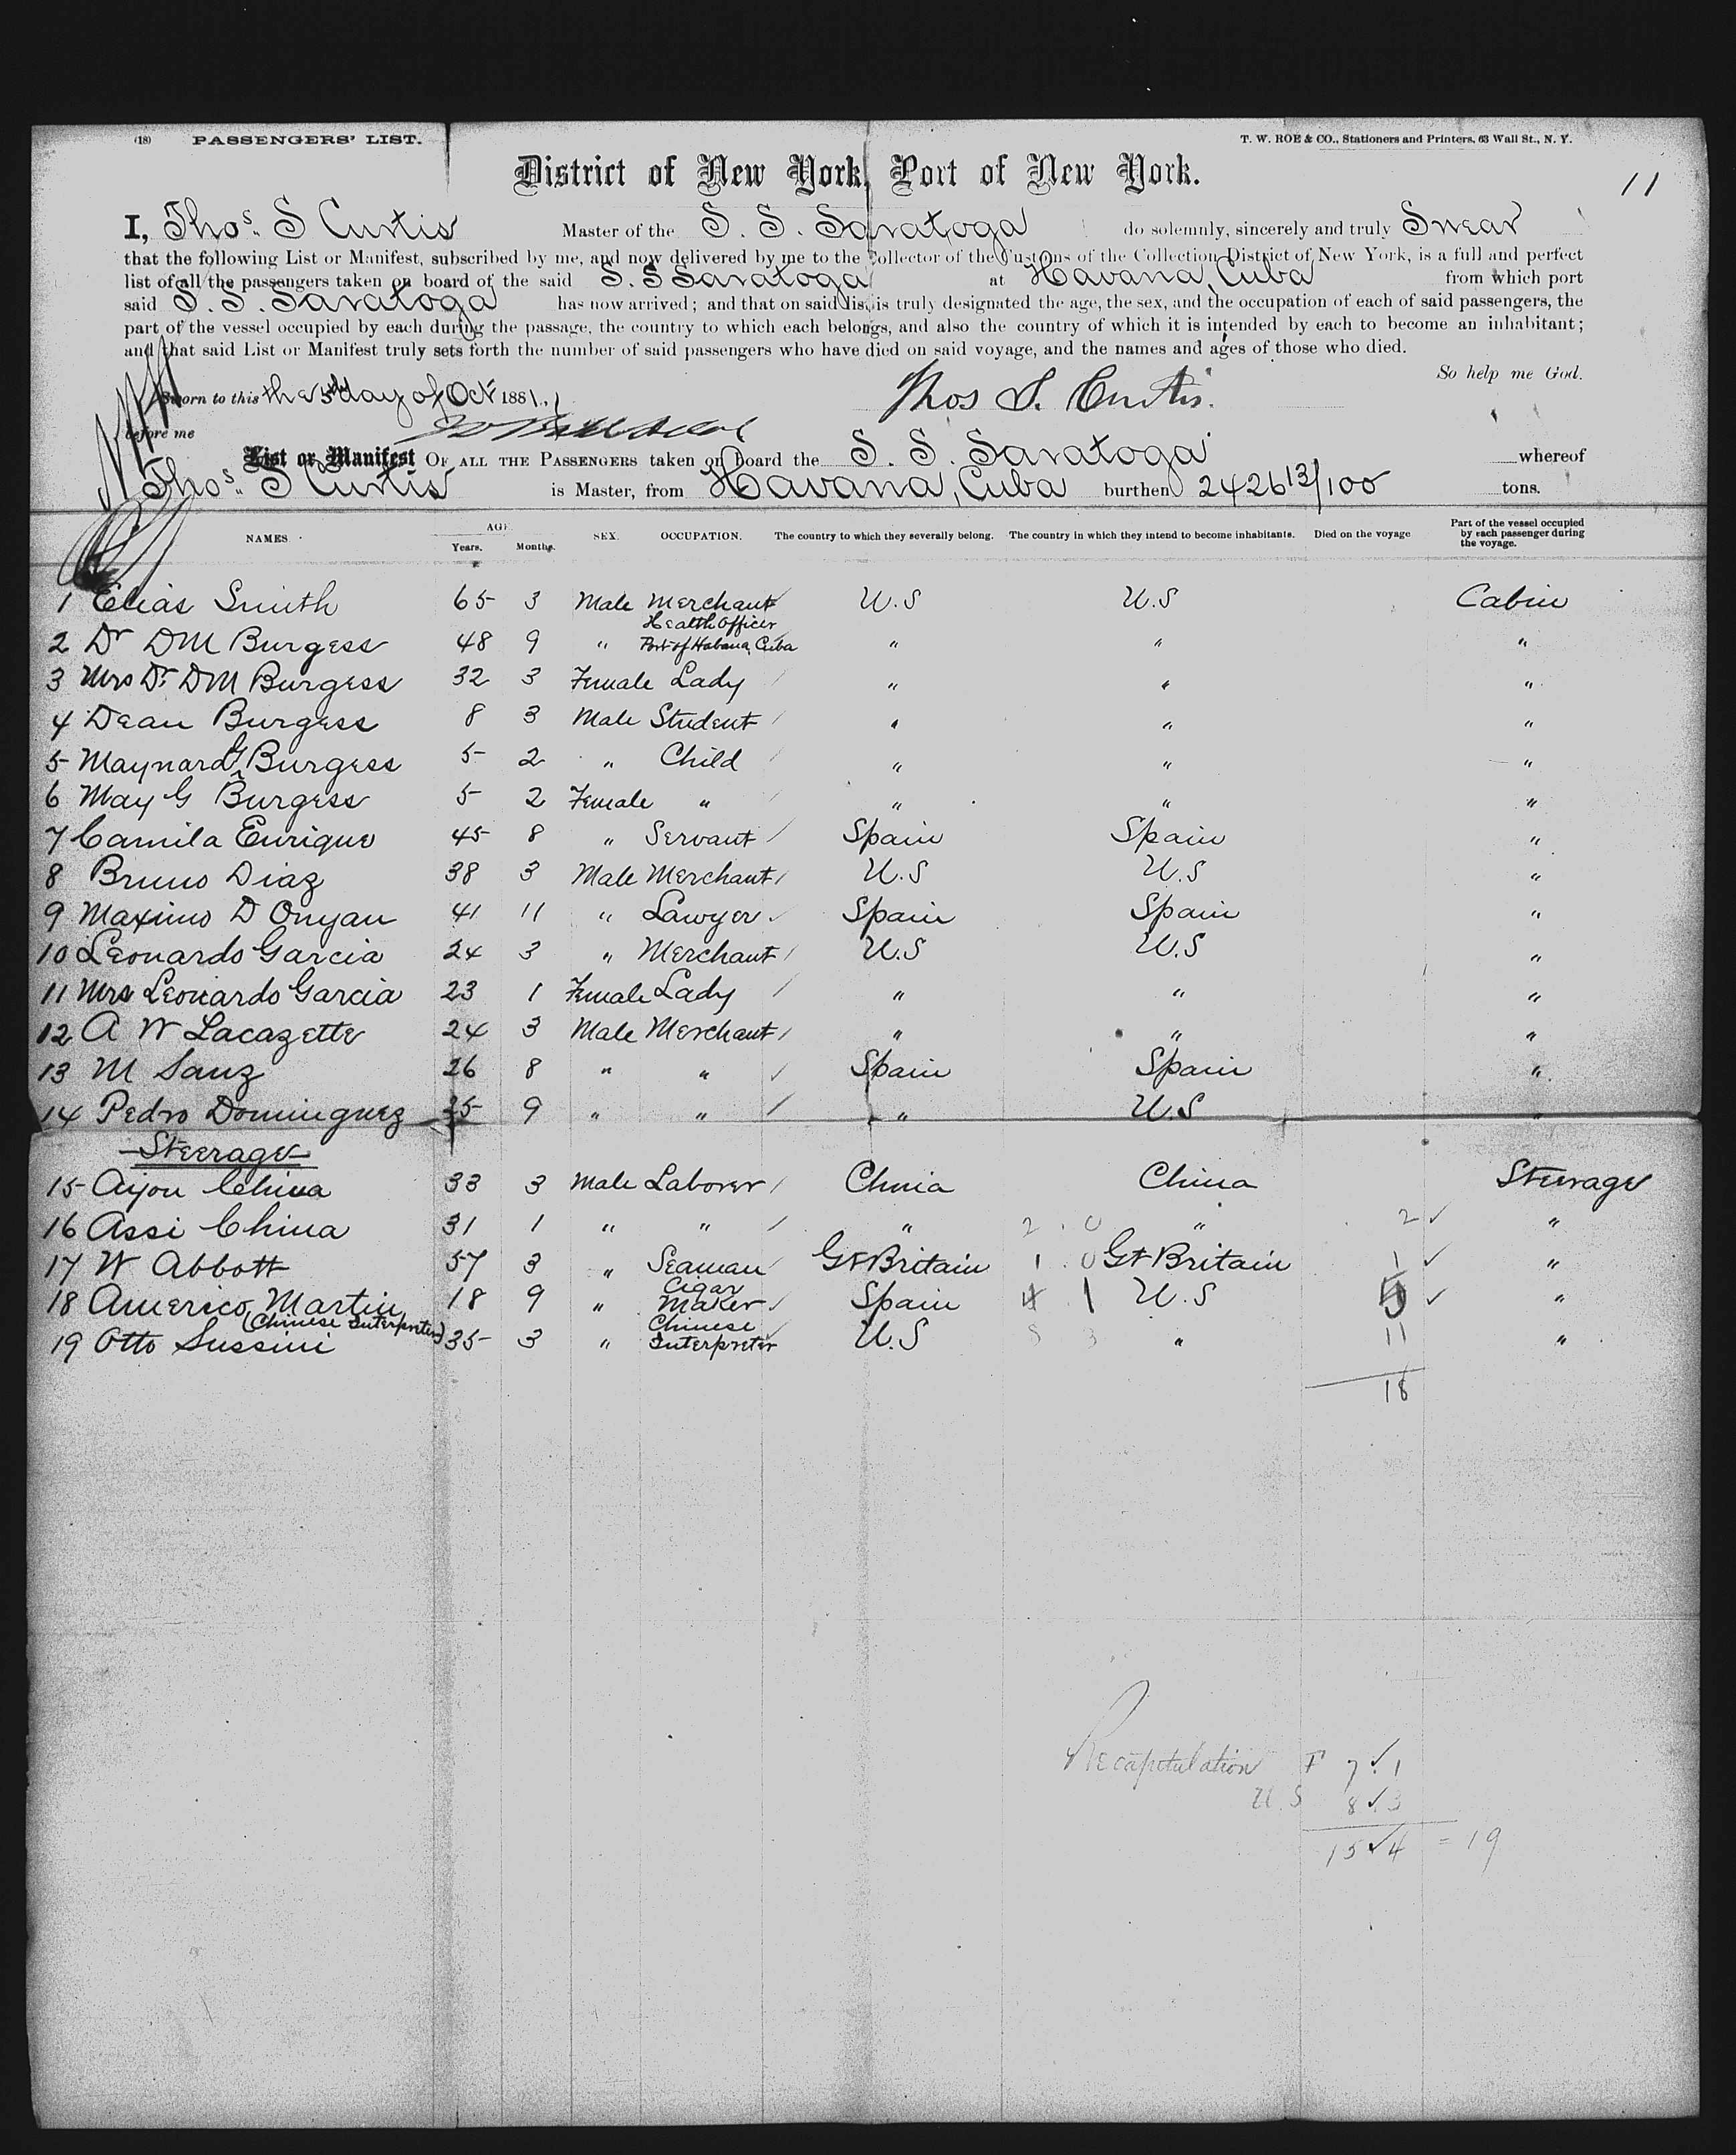 (18) PASSENGERS' LIST. T. W. ROE & CO., Stationers and Printers, 63 Wall St., N. Y.
District of New York, Port of New York.
11
I, Thos. S Curtis Master of the S. S. Saratoga do solemnly, sincerely and truly Swear
that the following List or Manifest, subscribed by me, and now delivered by me to the Collector of the Customs of the Collection District of New York, is a full and perfect
list of all the passengers taken on board of the said S. S Saratoga at Havana, Cuba from which port
said S. S. Saratoga has now arrived; and that on said list is truly designated the age, the sex, and the occupation of each of said passengers, the
part of the vessel occupied by each during the passage, the country to which each belongs, and also the country of which it is intended by each to become an inhabitant;
and that said List or Manifest truly sets forth the number of said passengers who have died on said voyage, and the names and ages of those who died.
So help me God.
Sworn to this the 5th day of Oct 1881, Thos S. Curtis.
before me
List or Manifest OF ALL THE PASSENGERS taken on board the S. S. Saratoga whereof
Thos. S Curtis is Master, from Havana, Cuba burthen 2426 13/100 tons.
NAMES AGE Years. Months. SEX. OCCUPATION. The country to which they severally belong. The country in which they intend to become inhabitants. Died on the voyage Part of the vessel occupied by each passenger during the voyage.
1 Elias Smith 65 3 Male Merchant U.S U.S Cabin
2 Dr DM Burgess 48 9 " Health Officer Port of Habana, Cuba " " "
3 Mrs Dr DM Burgess 32 3 Female Lady " " "
4 Dean Burgess 8 3 Male Student " " "
5 Maynard G Burgess 5 2 " Child " " "
6 May G Burgess 5 2 Female " " " "
7 Camila Enrique 45 8 " Servant Spain Spain "
8 Bruno Diaz 38 3 Male Merchant U.S U.S "
9 Maximo D Onyan 41 11 " Lawyer Spain Spain "
10 Leonardo Garcia 24 3 " Merchant U.S U.S "
11 Mrs Leonardo Garcia 23 1 Female Lady " " "
12 A W Lacazette 24 3 Male Merchant " " "
13 M Sanz 26 8 " " Spain Spain "
14 Pedro Dominguez 35 9 " " " U.S "
Steerage
15 Aijou China 33 3 Male Laborer China China Steerage
16 Assi China 31 1 " " " 2 . 0 " 2 ✓ "
17 W Abbott 57 3 " Seaman Gt Britain 1 . 0 Gt Britain 1 ✓ "
18 Americo Martin 18 9 " Cigar Maker Spain 4 . 1 U.S 5 ✓ "
(Chinese Interpreter)
19 Otto Sussini 35 3 " Chinese Interpreter U.S 8 3 " 11 "
18
Recapitulation F 7 ✓ 1
U.S 8 ✓ 3
15 ✓ 4 = 19